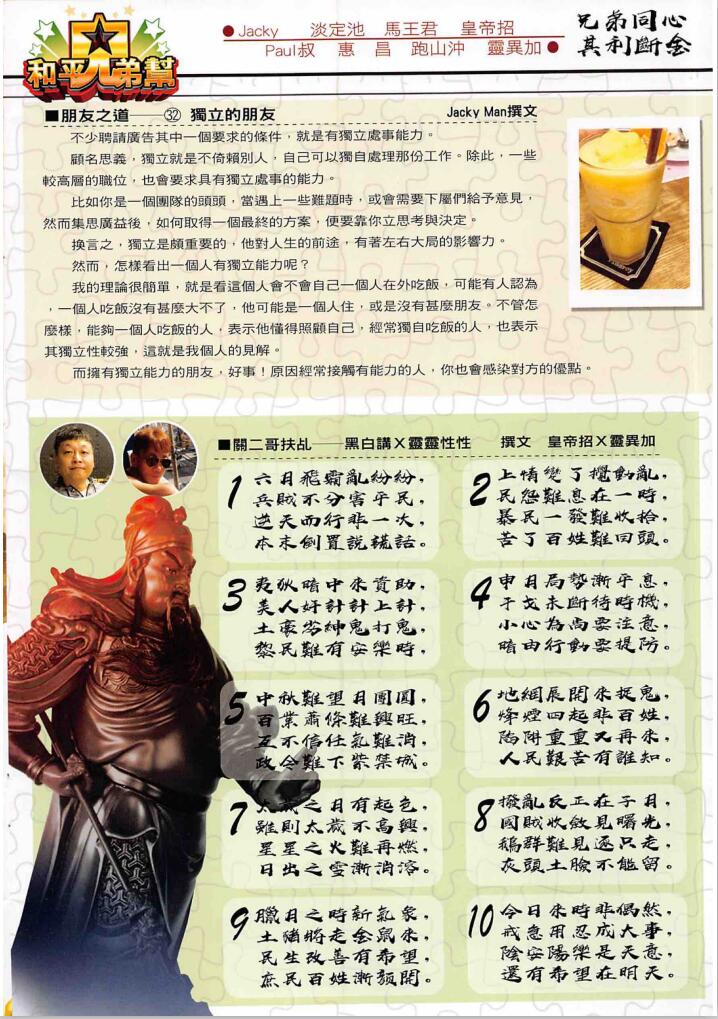 和平兄弟幫
Jacky 淡定池 馬王君 皇帝招
Paul叔 惠昌 跑山沖 靈異加
兄弟同心
其利斷金
■朋友之道——㉜ 獨立的朋友 Jacky Man撰文
不少聘請廣告其中一個要求的條件，就是有獨立處事能力。
顧名思義，獨立就是不倚賴別人，自己可以獨自處理那份工作。除此，一些
較高層的職位，也會要求具有獨立處事的能力。
比如你是一個團隊的頭頭，當遇上一些難題時，或會需要下屬們給予意見，
然而集思廣益後，如何取得一個最終的方案，便要靠你立思考與決定。
換言之，獨立是頗重要的，他對人生的前途，有著左右大局的影響力。
然而，怎樣看出一個人有獨立能力呢？
我的理論很簡單，就是看這個人會不會自己一個人在外吃飯，可能有人認為
，一個人吃飯沒有甚麼大不了，他可能是一個人住，或是沒有甚麼朋友。不管怎
麼樣，能夠一個人吃飯的人，表示他懂得照顧自己，經常獨自吃飯的人，也表示
其獨立性較強，這就是我個人的見解。
而擁有獨立能力的朋友，好事！原因經常接觸有能力的人，你也會感染對方的優點。
■關二哥扶乩——黑白講X靈靈性性 撰文 皇帝招X靈異加
1
六月飛霜亂紛紛，
兵賊不分害平民，
逆天而行非一次，
本末倒置說謊話。
2
上情變了攪動亂，
民怨難息在一時，
暴民一發難收拾，
苦了百姓難回頭。
3
夷狄暗中來資助，
美人奸計計上計，
土豪劣紳鬼打鬼，
黎民難有安樂時，
4
申月局勢漸平息，
干戈未斷待時機，
小心為尚要注意，
暗由行動要提防。
5
中秋難望月團圓，
百業蕭條難興旺，
互不信任氣難消，
政令難下紫禁城。
6
地網展開來捉鬼，
烽煙四起非百姓，
陷阱重重又再來，
人民艱苦有誰知。
7
之月有起色，
雖則太歲不高興，
星星之火難再燃，
日出之雪漸消溶。
8
撥亂反正在子月，
國賊收斂見曙光，
鵝群難見逐只走，
灰頭土臉不能留。
9
臘月之時新氣象，
土豬將走金鼠來，
民生改善有希望，
庶民百姓漸頟開。
10
今日來時非偶然，
戒急用忍成大事，
陰安陽樂是天意，
還有希望在明天。